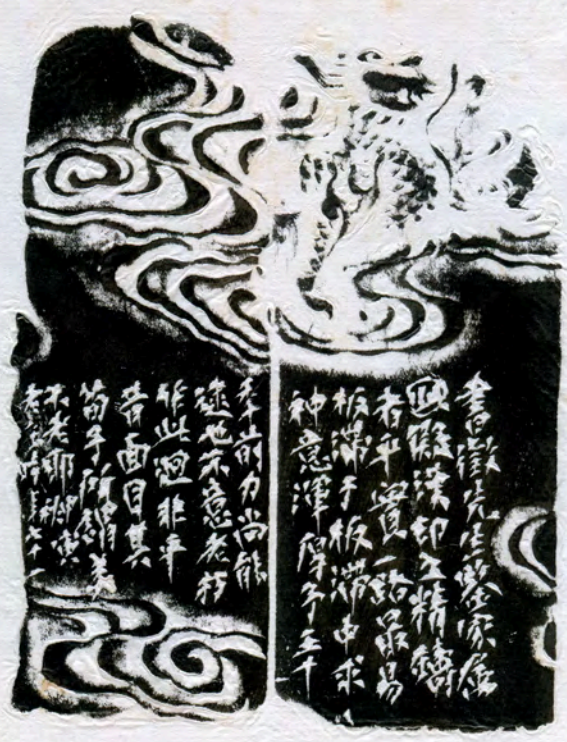 書徵先生鑒家屬
擬漢印之精鑄
者平實一路最易
板滯于板滯中求
神意渾厚予五十
年前力尚能
逮也不意老朽
作此迥非平
昔面目其
所謂美
不老耶
時年十一